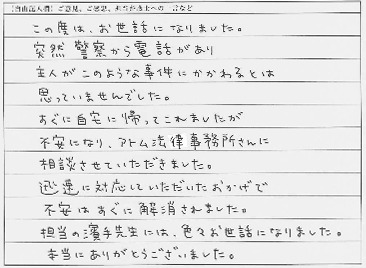 【自由記入欄】ご意見、ご感想、担当弁護士への一言など
この度は、お世話になりました。
突然警察から電話があり
主人がこのような事件にかかわるとは
思っていませんでした。
すぐに自宅に帰ってこれましたが
不安になり、アトム法律事務所さんに
相談させていただきました。
迅速に対応していただいたおかげで
不安はすぐに解消されました。
担当の濱手先生には、色々お世話になりました。
本当にありがとうございました。